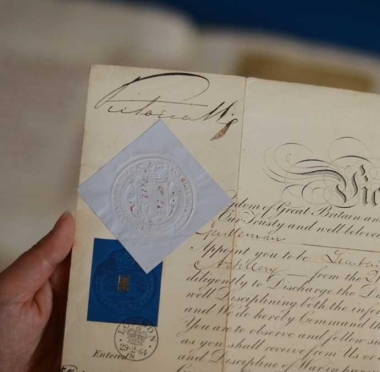 Victoria R
Vic
dom of Great Britain an
Our Trusty and well belove
Gentleman
Appoint you to be Lieuten
Artillery from the 2
diligently to Discharge the D
well Disciplining both the infer
and We do hereby Command th
You are to observe and follow su
as you shall receive from Us or a
and Discipline of War in
Entered